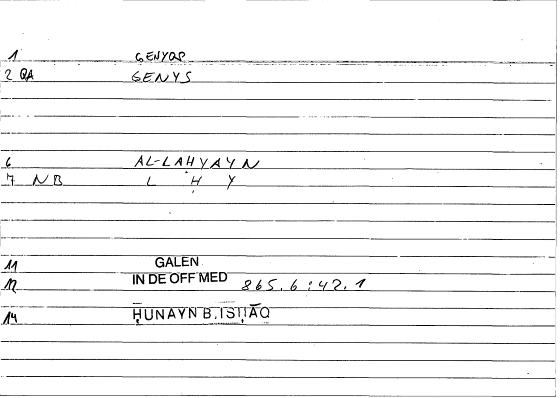 1 GENYOS
2 QA GENYS
6 AL-LAḤYAYN
7 NB L Ḥ Y
11 GALEN
12 IN DE OFF MED 865.6:42.1
14 ḤUNAYN B. ISḤĀQ